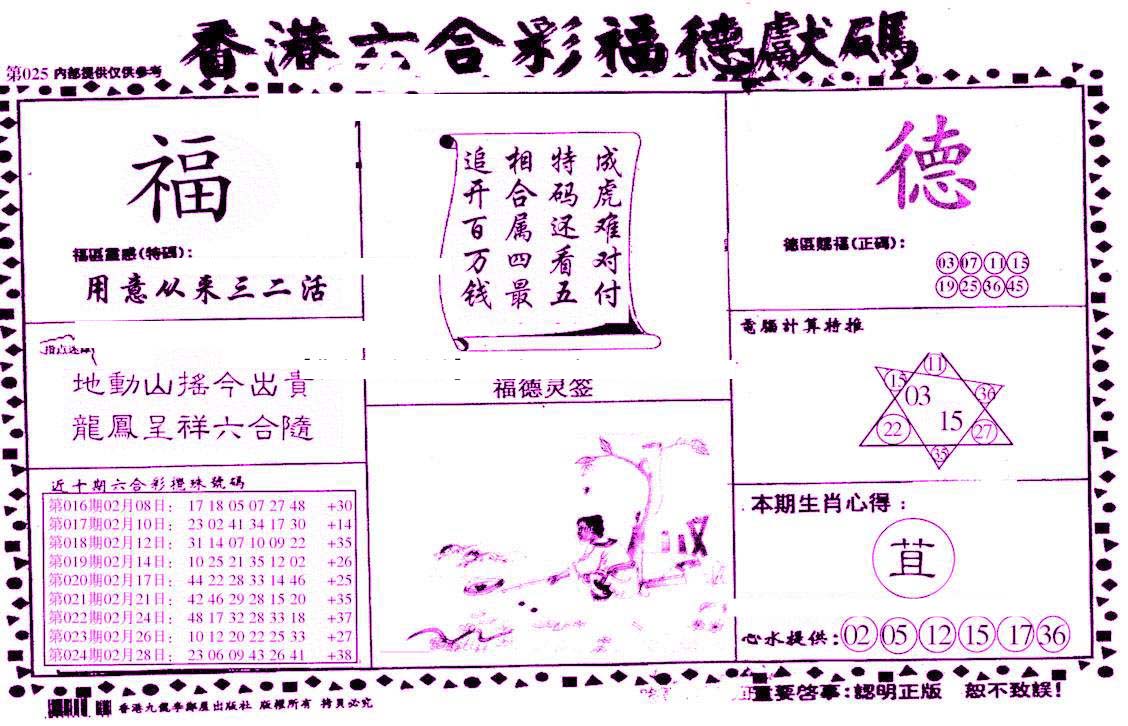 香港六合彩福德獻碼
第025 内部提供仅供参考
福
福區靈感(特碼):
用意从来三二活
成虎难对付
特码还看五
相合属四最
追开百万钱
德
德區賜福(正碼):
03 07 11 15
19 25 36 45
地動山搖今出貴
龍鳳呈祥六合隨
福德灵签
電腦計算特推
11
15 36
03
15
22 27
35
近十期六合彩攪珠號碼
第016期02月08日: 17 18 05 07 27 48 +30
第017期02月10日: 23 02 41 34 17 30 +14
第018期02月12日: 31 14 07 10 09 22 +35
第019期02月14日: 10 25 21 35 12 02 +26
第020期02月17日: 44 22 28 33 14 46 +25
第021期02月21日: 42 46 29 28 15 20 +35
第022期02月24日: 48 17 32 28 33 18 +37
第023期02月26日: 10 12 20 22 25 33 +27
第024期02月28日: 23 06 09 43 26 41 +38
本期生肖心得:
苴
心水提供: 02 05 12 15 17 36
重要啓事:認明正版 恕不致誤!
版權所有 拷貝必究